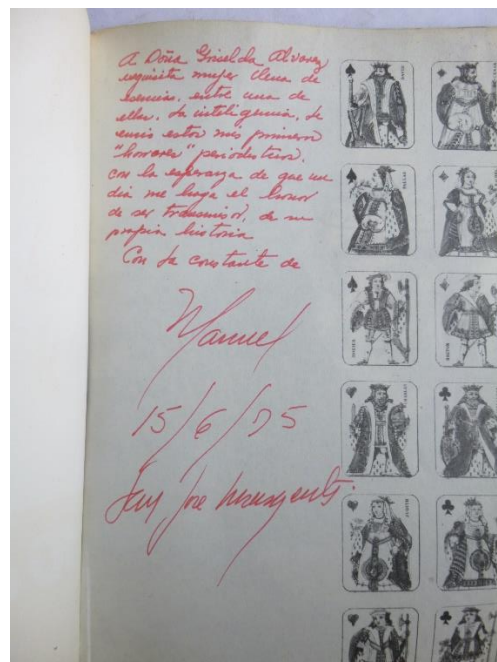 A Doña Griselda Alvarez
exquisita mujer llena de
esencias, entre una de
ellas, la inteligencia, le
envio estos mis primeros
"honores" periodisticos,
con la esperanza de que un
dia me haga el honor
de ser transmisor, de su
propia historia
Con la constante de
Manuel
15/6/75
San Jose
DAVID
PALLAS
HECTOR
JUDITH